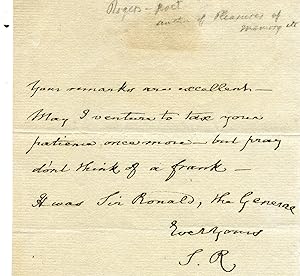 Rogers - Poet
author of Pleasures of
Memory etc
Your remarks are excellent -
May I venture to tax your
patience once more - but pray
don't think of a frank -
It was Sir Ronald, the General
Ever Yours
S. R